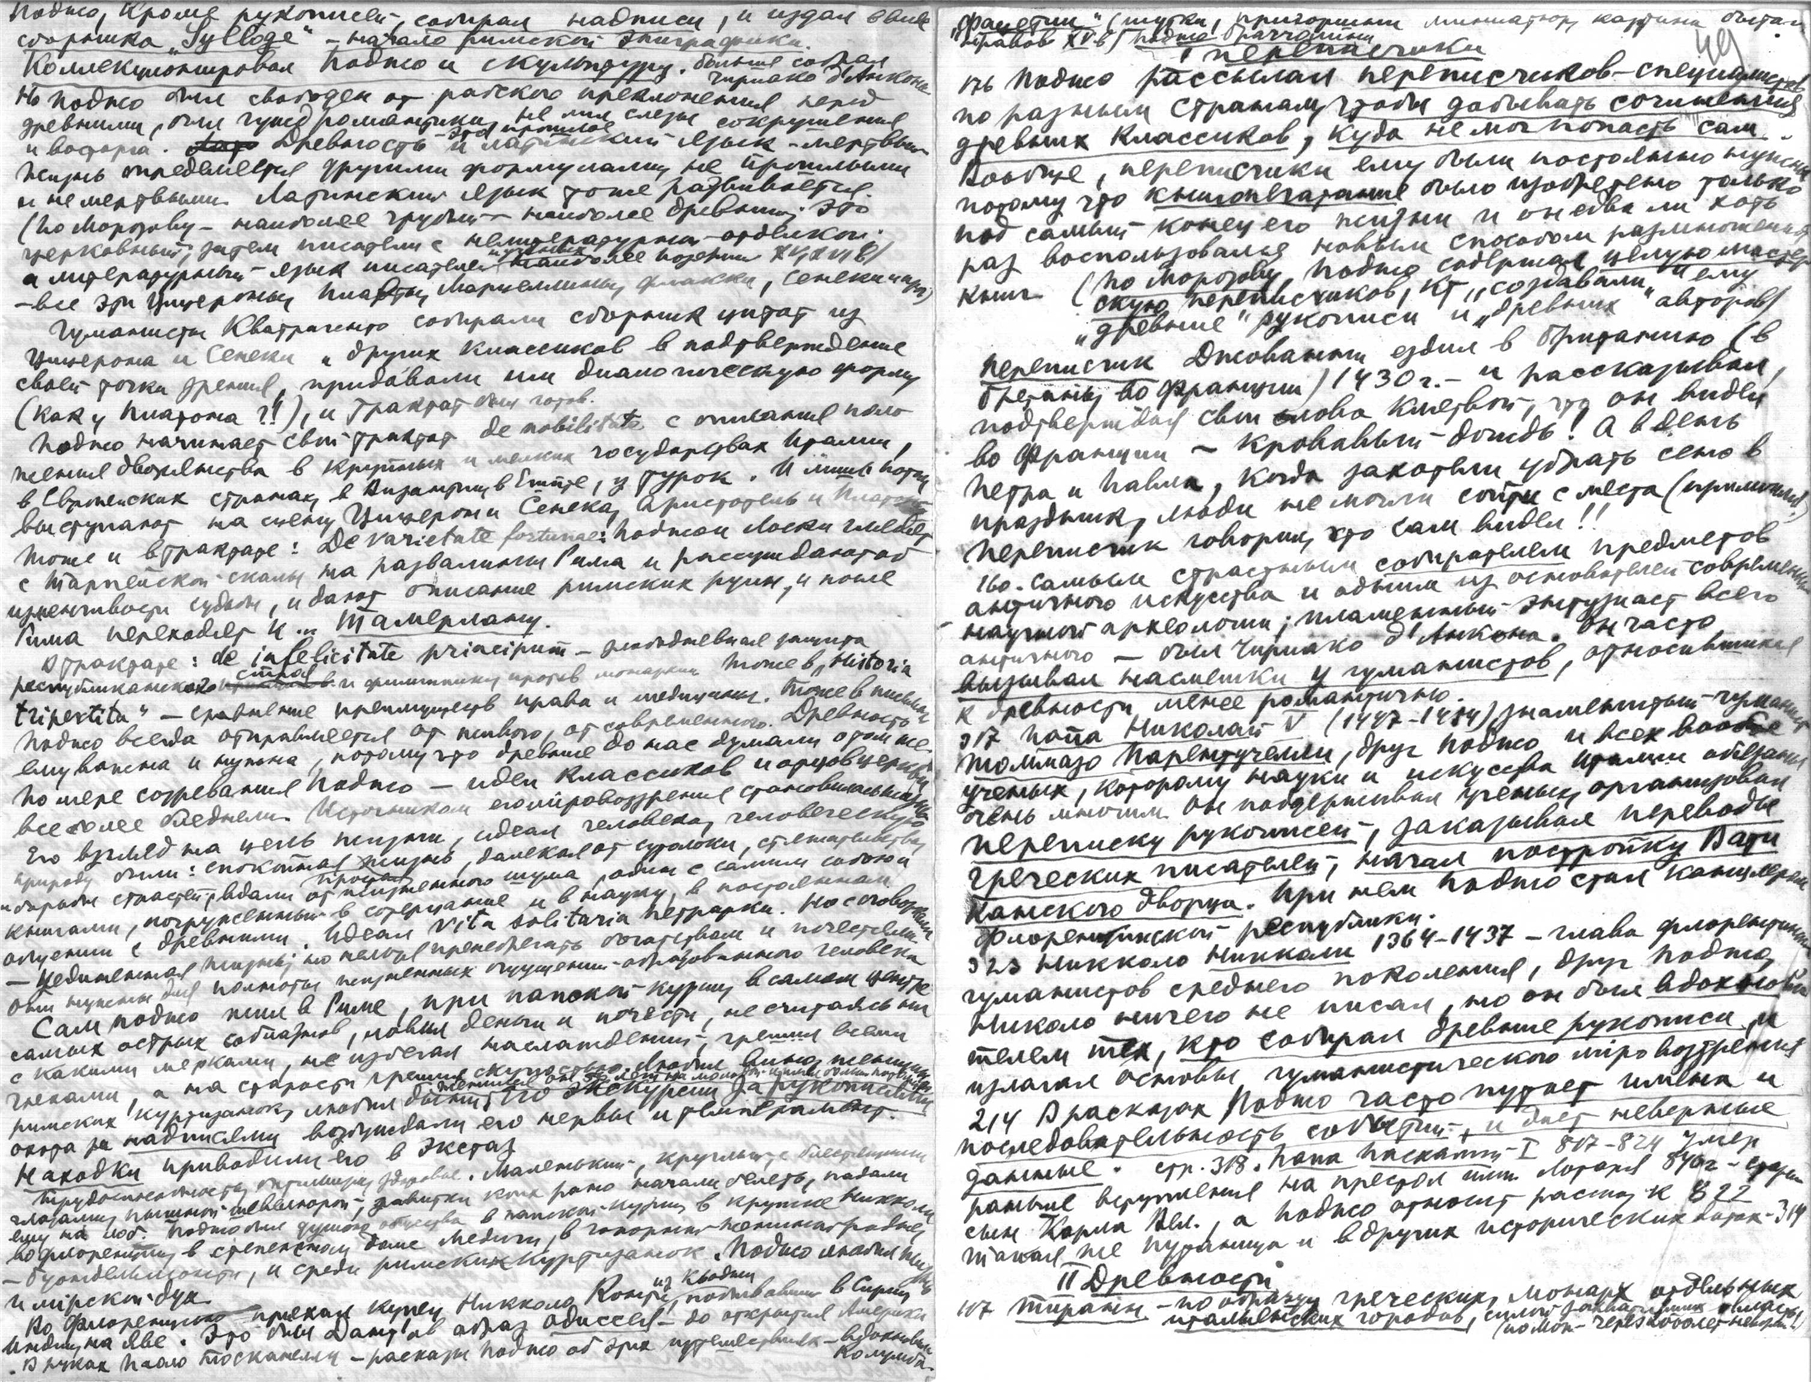 Поджо, кроме рукописей, собирал надписи, и издал в виде
сборника „Sylloge" – начало римской эпиграфики.
Коллекционировал Поджо и скульптуру. больше собрал
Чириако д'Анкона
Но Поджо был свободен от рабского преклонения перед
древними, был чужд романтики, не лил слезы сокрушения
и восторга. Древность – это прошлое и латинский язык – мертвый
Жизнь определяется другими формулами, не прошлыми
и не мертвыми. Латинский язык тоже развивается
(по Морозову – наиболее грубый – наиболее древний: это
церковный, затем писатели с нелитературным отделкой.
а литературный язык писателей наиболее поздних XV, XVI в)
– все эти Цицероны, Плавты, Марцеллины, Флакки, Сенеки и пр)
Гуманисты Кватраченто собирали сборник цитат из
Цицерона и Сенеки и других классиков в подтверждение
своей точки зрения, придавали им диалогическую форму
(как у Платона ?!), и трактат был готов.
Поджо начинает свой трактат de nobilitate с описания поло
жения дворянства в крупных и мелких государствах Италии,
в Европейских странах, в Византии, в Египте, у турок. И лишь потом
выступают на сцену Цицерон и Сенека, Аристотель и Платон
Тоже и в трактате: De varietate fortunae: Поджо и Лоски глядят
с Тарпейской скалы на развалины Рима и рассуждают об
изменчивости судьбы, и дают описание римских руин, и после
Рима переходят к... Тамерлану.
В трактате: de infelicitate principum – злободневная защита
республиканского строя и филиппику против монархии Тоже в „Historia
tripertita" – сравнение преимуществ права и медицины. Тоже в письмах
Поджо всегда отправляется от живого, от современного. Древность
ему важна и нужна, потому что древние до нас думали о том же.
По мере созревания Поджо – идеи классиков и отцов церкви
все более бледнели. Источником его мировоззрения становилась жизнь
Его взгляд на цель жизни, идеал человека, человеческую
природу были: спокойная жизнь, далекая от суголоки, стяжательства
и борьбы страстей, вдали от жизненного шума, один с самим собою и
книгами, погруженный в созерцание и в науку, в постоянном
общении с древними. Идеал Vita solitaria Петрарки. Но с оговоркой
– Уединенная жизнь, но нельзя пренебрегать богатством и почестями
они нужны для полноты жизненных ощущений образованного человека
Сам Поджо жил в Риме, при папской курии, в самом центре
самых острых событий, ловил деньги и почести, не считаясь ни
с какими мерками, не избегал наслаждений, грешил всеми
грехами, а на старости грешил скупостью. Любил вино, женщин
римских куртизанок, любил
охота за надписями возбуждали его нервы и темперамент.
Находки приводили его в экстаз
Трудоспособность, оптимизм, здоровье. Маленький, круглый с блестящими
глазами, пышной шевелюрой, завитки коих рано начали белеть, падали
ему на лоб. Поджо был душою общества в папской курии, в кружке Никколи
во Флоренции, в степенном доме Медичи, в говорильне
– и среди римских куртизанок. Поджо любил жизнь
и мирской дух
Во Флоренцию приехал купец Никколо Конти из Кьоджи, побывавший в Сирии
Индии, на Яве. Это был Дантов образ одиссея – до открытия Америки
В руках Паоло Тосканелли – рассказы Поджо об этих путешествиях – вдохновили
Колумба.
„Фацетии" (шутки, пригоршни миниатюр, картины быта
нравов XV в) Поджо Браччолини
49
I переписчики
Поджо рассылал переписчиков-специалистов
по разным странам, чтобы добывать сочинения
древних классиков, куда не мог попасть сам.
Вообще, переписчики ему были постоянно нужны
потому что книгопечатание было изобретено только
под самый конец его жизни и он едва ли хоть
раз воспользовался новым способом размножения
книг (по Морозову, Поджо содержал целую мастер
скую переписчиков, кт „создавали" ему
„древние" рукописи и „древних" авторов)
Переписчик Джованни ездил в Британию (в
Бретань, во Франции) 1430 г. – и рассказывал,
подтверждая свои слова клятвой, что он видел
во Франции – кровавый дождь! А в день
Петра и Павла, когда захотели убрать сено в
праздник, люди не могли сойти с места (прилипли)
Переписчик говорил, что сам видел!!
160. Самым страстным собирателем предметов
античного искусства и одним из основателей современной
научной археологии, пламенный энтузиаст всего
античного – был Чириако д'Анкона. Он часто
вызывал насмешки у гуманистов, относившихся
к древности менее романтично.
317 Папа Николай V (1447-1454) знаменитый гуманист
Томмазо Парентучелли, друг Поджо и всех вообще
ученых, которому науки и искусства Италии обязаны
очень многим. Он поддерживал ученых, организовал
переписку рукописей, заказывал переводы
греческих писателей, начал постройку Вати
канского дворца. При нем Поджо стал канцлером
Флорентийской республики.
323 Никколо Никколи 1364-1437 – глава флорентийских
гуманистов среднего поколения, друг Поджо,
Николо ничего не писал, но он был вдохнови
телем тех, кто собирал древние рукописи, и
излагал основы гуманистического мировоззрения
214 В рассказах Поджо часто путает имена и
последовательность событий, и дает неверные
данные. стр. 318. Папа Паскалий I 817-824 умер
раньше вступления на престол имп Лотаря 840 г – старш
сын Карла Вел., а Поджо относит рассказ к 822
такая же путаница и в других исторических датах – 314
II Древности
107 Тираны – по образцу греческих, монарх отдельных
итальянских городов, силою захвативших власть
(по Мор – через 2000 лет неверно!)